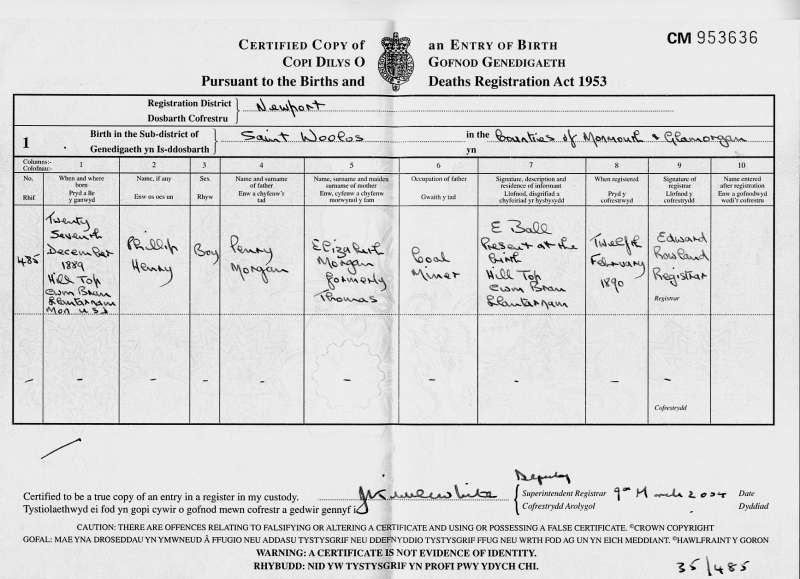 CERTIFIED COPY of an ENTRY OF BIRTH
COPI DILYS O GOFNOD GENEDIGAETH
Pursuant to the Births and Deaths Registration Act 1953
CM 953636
Registration District Newport
Dosbarth Cofrestru
1 Birth in the Sub-district of Saint Woolos in the Counties of Monmouth & Glamorgan
Genedigaeth yn Is-ddosbarth yn
Columns:- 1 2 3 4 5 6 7 8 9 10
Colofnau:-
No. When and where born Name, if any Sex Name and surname of father Name, surname and maiden surname of mother Occupation of father Signature, description and residence of informant When registered Signature of registrar Name entered after registration
Rhif Pryd a lle y ganwyd Enw os oes un Rhyw Enw a chyfenw'r tad Enw, cyfenw a chyfenw morwynol y fam Gwaith y tad Llofnod, disgrifiad a chyfeiriad yr hysbysydd Pryd y cofrestrwyd Llofnod y cofrestrydd Enw a gofnodwyd wedi'r cofrestru
485
Twenty
Seventh
December
1889
Hill Top
Cwm Bran
Llantarnam
Mon U.S.D
Phillip
Henry
Boy
Penry
Morgan
Elizabeth
Morgan
formerly
Thomas
Coal
Miner
E Ball
Present at the
birth
Hill Top
Cwm Bran
Llantarnam
Twelfth
February
1890
Edward
Rowland
Registrar
Registrar
– – – – – – – – – –
Cofrestrydd
Deputy
Certified to be a true copy of an entry in a register in my custody. Superintendent Registrar 9th March 2004 Date
Tystiolaethwyd ei fod yn gopi cywir o gofnod mewn cofrestr a gedwir gennyf i Cofrestrydd Arolygol Dyddiad
CAUTION: THERE ARE OFFENCES RELATING TO FALSIFYING OR ALTERING A CERTIFICATE AND USING OR POSSESSING A FALSE CERTIFICATE. ©CROWN COPYRIGHT
GOFAL: MAE YNA DROSEDDAU YN YMWNEUD Â FFUGIO NEU ADDASU TYSTYSGRIF NEU DDEFNYDDIO TYSTYSGRIF FFUG NEU WRTH FOD AG UN YN EICH MEDDIANT. ©HAWLFRAINT Y GORON
WARNING: A CERTIFICATE IS NOT EVIDENCE OF IDENTITY.
RHYBUDD: NID YW TYSTYSGRIF YN PROFI PWY YDYCH CHI.
35/485